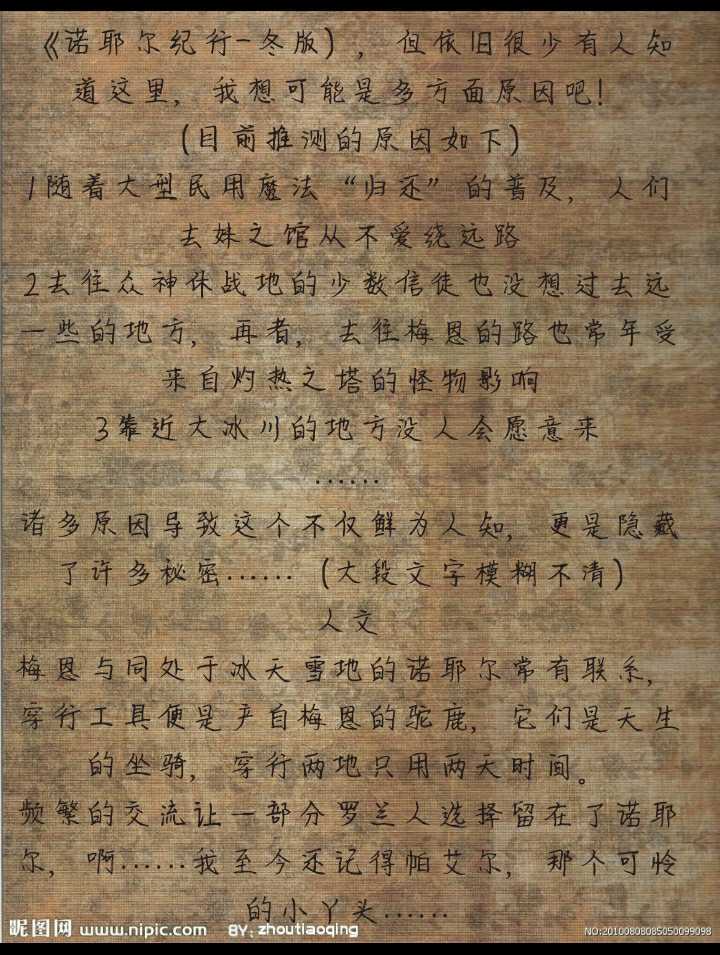 《诺耶尔纪行-冬版), 但依旧很少有人知
道这里, 我想可能是多方面原因吧!
(目前推测的原因如下)
1随着大型民用魔法“归还”的普及, 人们
去妹之馆从不爱绕远路
2去往众神休战地的少数信徒也没想过去远
一些的地方, 再者, 去往梅恩的路也常年受
来自灼热之塔的怪物影响
3靠近大冰川的地方没人会愿意来
......
诸多原因导致这个不仅鲜为人知, 更是隐藏
了许多秘密...... (大段文字模糊不清)
人文
梅恩与同处于冰天雪地的诺耶尔常有联系,
穿行工具便是产自梅恩的驼鹿, 它们是天生
的坐骑, 穿行两地只用两天时间。
频繁的交流让一部分罗兰人选择留在了诺耶
尔, 啊......我至今还记得帕艾尔, 那个可怜
的小丫头......
昵图网 www.nipic.com BY: zhoutiaoqing NO:20100808085050099098